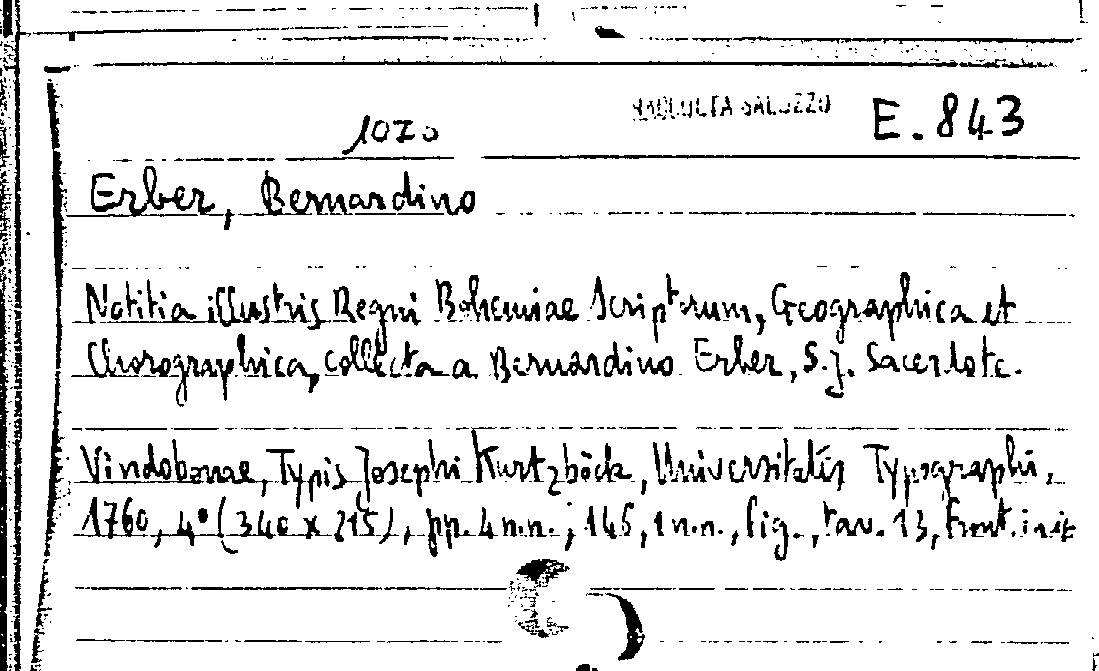 RACCOLTA SALUZZO E.843
1070
Erber, Bernardino
Notitia illustris Regni Bohemiae Scriptorum, Geographica et
Chorographica, collecta a Bernardino Erber, S.J. Sacerdote.
Vindobonae, Typis Josephi Kurtzböck, Universitatis Typographi,
1760, 4° (340 x 215), pp. 4 n.n.; 145, 1 n.n., fig., tav. 13, front.